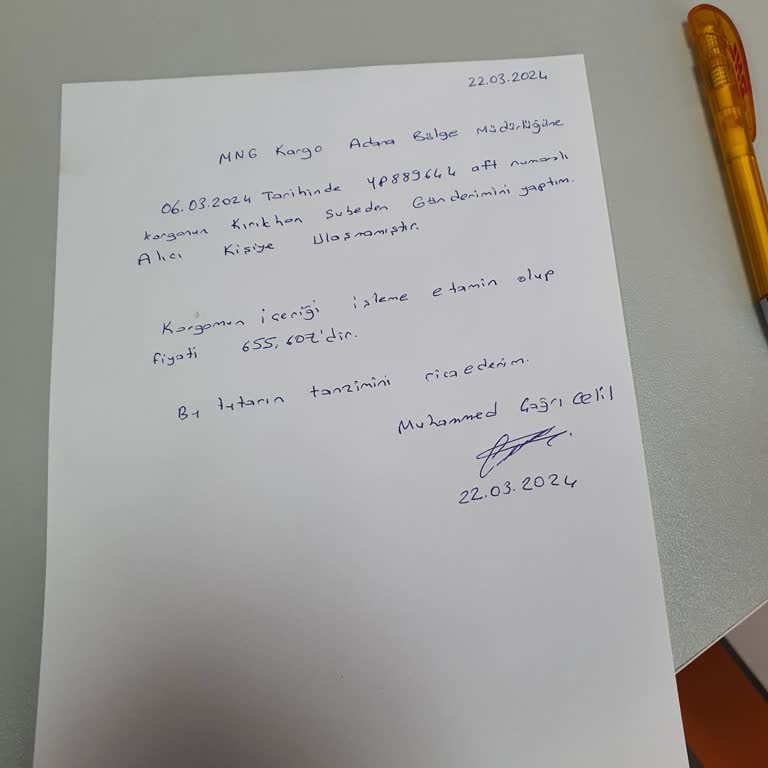 22.03.2024
MNG Kargo Adana Bölge Müdürlüğüne
06.03.2024 Tarihinde YP889644 aft numaralı
kargonun Kırıkhan Şubeden Gönderimini yaptım.
Alıcı Kişiye Ulaşmamıştır.
Kargomun içeriği işleme etamin olup
fiyati 655,60₺'dir.
Bu tutarın tanzimini rica ederim.
Muhammed Çağrı Celil
22.03.2024